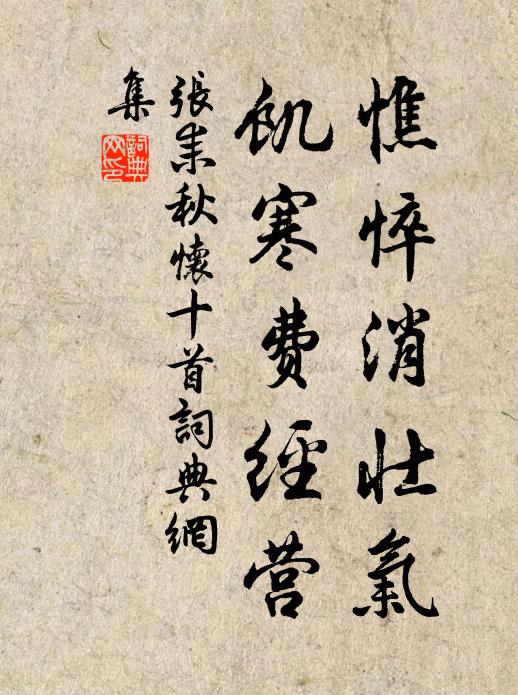 憔悴消壮氣
飢寒費經营
張耒秋懷十首詞典網
集
詞典网印